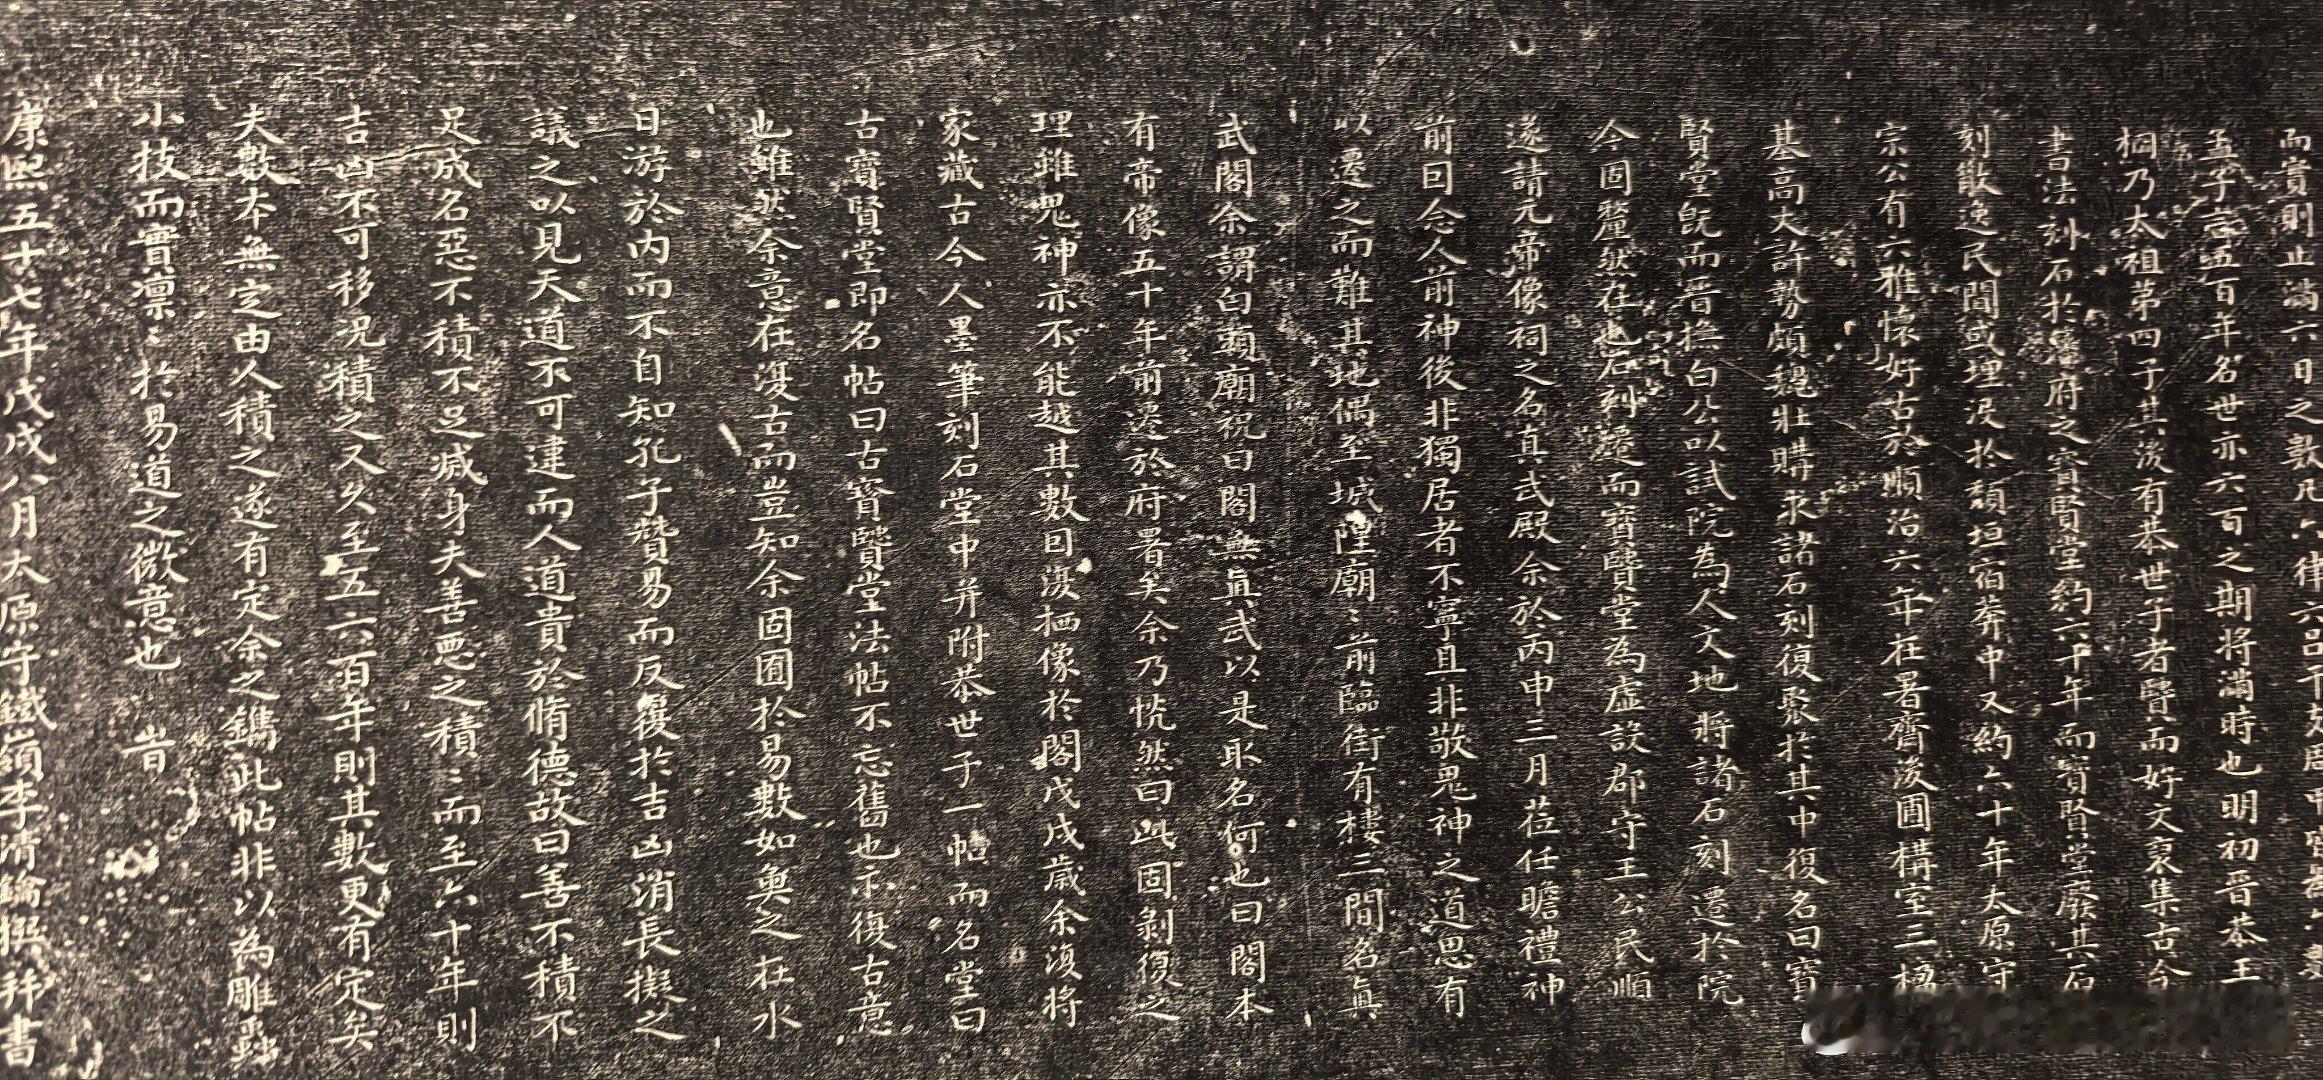 而實則止滿六日之數凡六律六呂
孟子言五百年名世亦六百之期將滿時也明初晉恭王
棡乃太祖第四子其後有恭世子者賢而好文裒集古今
書法刻石於藩府之寶賢堂約六十年而寶賢堂廢其石
刻散逸民間或埋沒於頹垣宿莽中又約六十年太原守
宗公有六雅懷好古於順治六年在署齋後圃構室三楹
基高大許勢頗魏壯購求諸石刻復聚於其中復名曰寶
賢堂既而晉撫白公以試院為人文地將諸石刻遷於院
今固釐然在也石刻遷而寶賢堂為虛設郡守王公民順
遂請元帝像祠之名真武殿余於丙申三月莅任瞻禮神
前曰念人前神後非獨居者不寧且非敬鬼神之道思有
以遷之而難其地偶至城隍廟〻前臨街有樓三間名眞
武閣余謂白顯廟祝曰閣無眞武以是取名何也曰閣本
有帝像五十年前遷於府署矣余乃恍然曰此固剝復之
理雖鬼神亦不能越其數因復栖像於閣戊戌歲余復將
家藏古今人墨筆刻石堂中并附恭世子一帖而名堂曰
古寶賢堂即名帖曰古寶賢堂法帖不忘舊也示復古意
也雖然余意在復古而豈知余固囿於易數如魚之在水
日游於內而不自知孔子贊易而反復於吉凶消長擬之
議之以見天道不可違而人道貴於脩德故曰善不積不
足成名惡不積不足滅身夫善惡之積〻而至六十年則
吉凶不可移況積之又久至五六百年則其數更有定矣
夫數本無定由人積之遂有定余之鐫此帖非以為雕蟲
小技而實凛〻於易道之微意也 旹
康熙五十七年戊戌八月太原守鐵嶺李清鑰撰并書